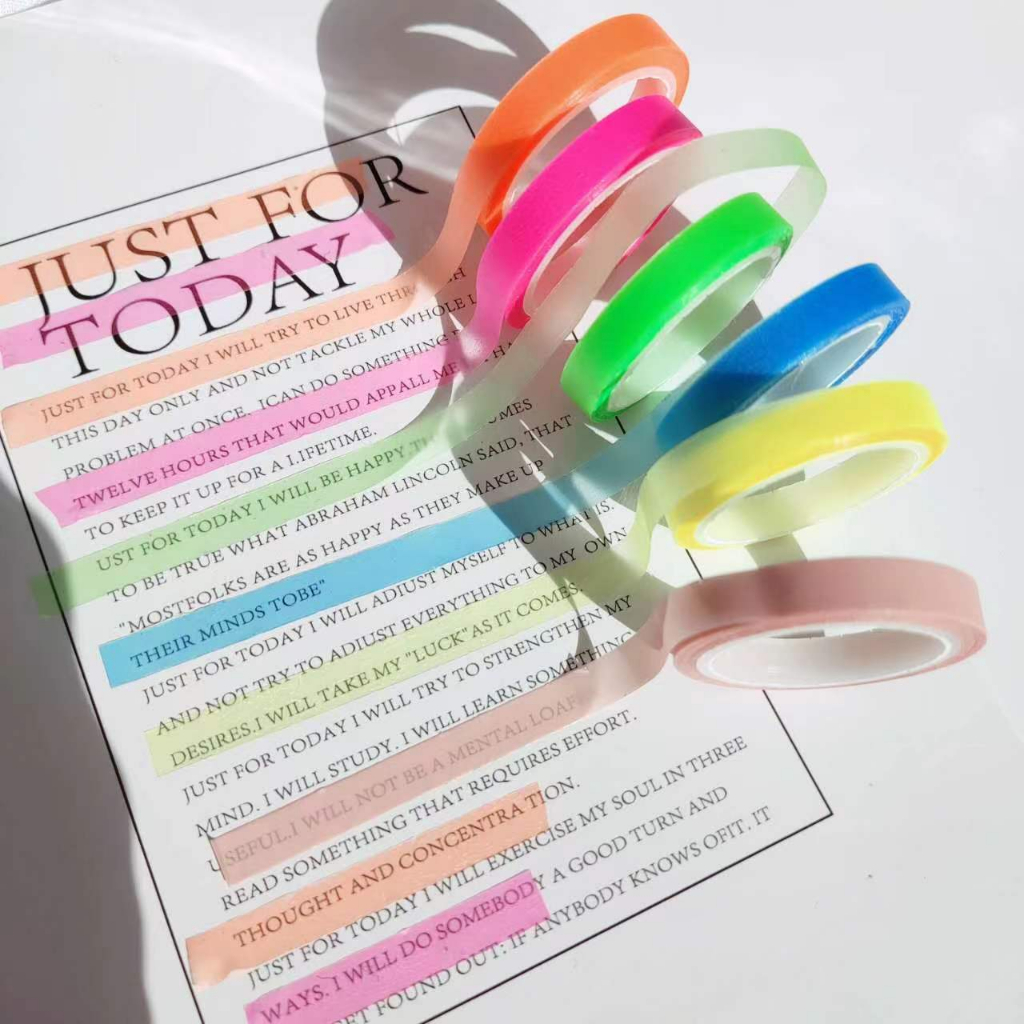 JUST FOR
TODAY
JUST FOR TODAY I WILL TRY TO LIVE THROUGH
THIS DAY ONLY AND NOT TACKLE MY WHOLE
PROBLEM AT ONCE. ICAN DO SOMETHING
TWELVE HOURS THAT WOULD APPALL ME
TO KEEP IT UP FOR A LIFETIME.
UST FOR TODAY I WILL BE HAPPY.
TO BE TRUE WHAT ABRAHAM LINCOLN SAID, THAT
"MOSTFOLKS ARE AS HAPPY AS THEY MAKE UP
THEIR MINDS TOBE"
JUST FOR TODAY I WILL ADJUST MYSELF TO WHAT IS.
AND NOT TRY TO ADJUST EVERYTHING TO MY OWN
DESIRES.I WILL TAKE MY "LUCK"AS IT COMES.
JUST FOR TODAY I WILL TRY TO STRENGTHEN MY
MIND. I WILL STUDY. I WILL LEARN SOMETHING
USEFUL.I WILL NOT BE A MENTAL LOAF
READ SOMETHING THAT REQUIRES EFFORT.
THOUGHT AND CONCENTRATION.
JUST FOR TODAY I WILL EXERCISE MY SOUL IN THREE
WAYS. I WILL DO SOMEBODY A GOOD TURN AND
GET FOUND OUT: IF ANYBODY KNOWS OFIT. IT